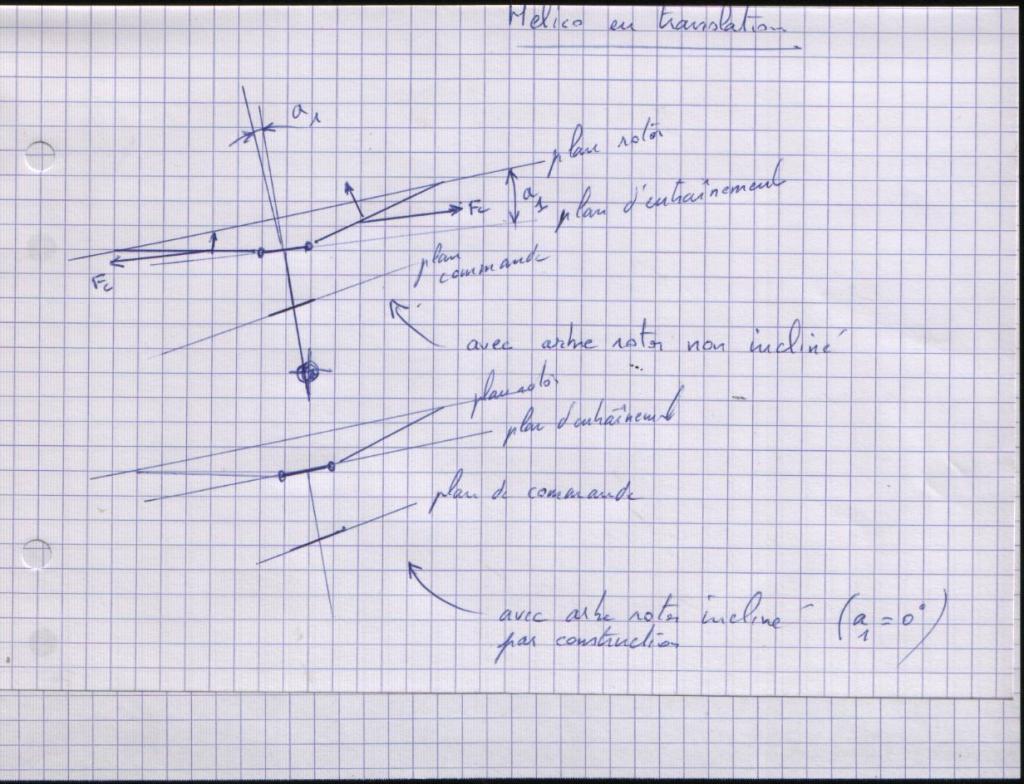 Hélico en translation
a1
plan rotor
a1
plan d'entraînement
Fc
plan
commande
Fc
avec arbre rotor non incliné
plan rotor
plan d'entraînement
plan de commande
avec arbre rotor incliné (a1 = 0°)
par construction